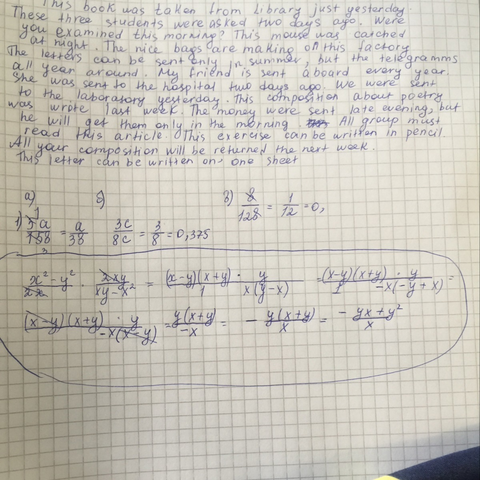 This book was taken from Library just yesterday.
These three students were asked two days ago. Were
you examined this morning? This mouse was catched
at night. The nice bags are making on this factory
The letters can be sent only in summer, but the telegramms
all year around. My friend is sent aboard every year.
She was sent to the hospital two days ago. We were sent
to the laboratary yesterday. This composition about poetry
was wrote last week. The money were sent late evening, but
he will get them only in the morning All group must
read this article This exercise can be written in pencil
All your composition will be returned the next week.
This letter can be written on one sheet
a) б) в) 8/128 = 1/12 = 0,
1) a/38 3c/8c = 3/8 = 0,375
x² - y² · 2xy/xy-x² = (x-y)(x+y)/1 · y/x(y-x) = (x-y)(x+y)/1 · y/-x(-y+x) =
(x-y)(x+y) · y/-x(x-y) = y(x+y)/-x = - y(x+y)/x = - yx+y²/x